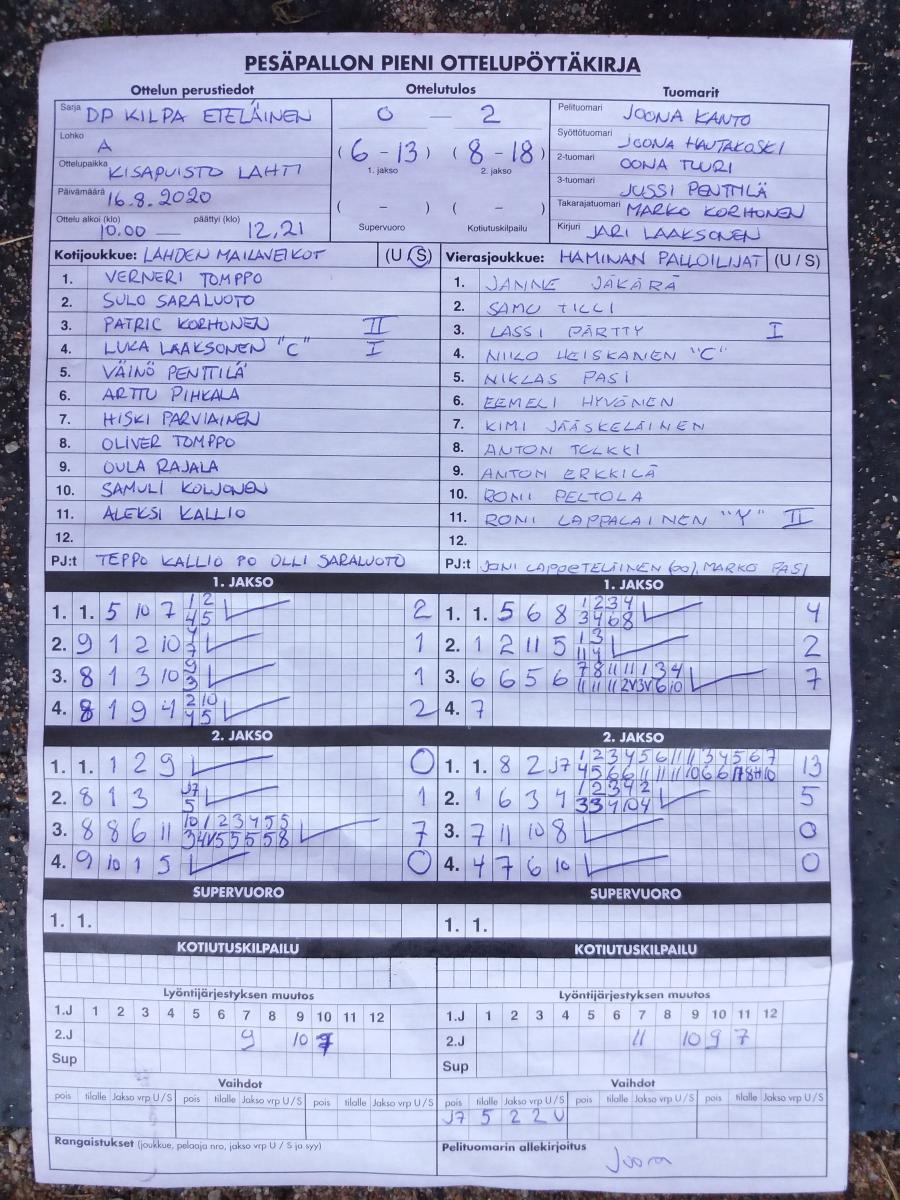 PESÄPALLON PIENI OTTELUPÖYTÄKIRJA
Ottelun perustiedot
Sarja DP KILPA ETELÄINEN
Lohko A
Ottelupaikka KISAPUISTO LAHTI
Päivämäärä 16.8.2020
Ottelu alkoi (klo) 10.00 — päättyi (klo) 12,21
Ottelutulos
0 — 2
(6 - 13) (8 - 18)
1. jakso 2. jakso
( - ) ( - )
Supervuoro Kotiutuskilpailu
Tuomarit
Pelituomari JOONA KANTO
Syöttötuomari JOONA HAUTAKOSKI
2-tuomari OONA TUURI
3-tuomari JUSSI PENTTILÄ
Takarajatuomari MARKO KORHONEN
Kirjuri JARI LAAKSONEN
Kotijoukkue: LAHDEN MAILAVEIKOT (U / S)
1. VERNERI TOMPPO
2. SULO SARALUOTO
3. PATRIC KORHONEN II
4. LUKA LAAKSONEN "C" I
5. VÄINÖ PENTTILÄ
6. ARTTU PIHKALA
7. HISKI PARVIAINEN
8. OLIVER TOMPPO
9. OULA RAJALA
10. SAMULI KOLJONEN
11. ALEKSI KALLIO
12.
PJ:t TEPPO KALLIO PO OLLI SARALUOTO
Vierasjoukkue: HAMINAN PALLOILIJAT (U / S)
1. JANNE JÄKÄRÄ
2. SAMU TILLI
3. LASSI PÄRTTY I
4. NIILO HEISKANEN "C"
5. NIKLAS PASI
6. EEMELI HYVÖNEN
7. KIMI JÄÄSKELÄINEN
8. ANTON TULKKI
9. ANTON ERKKILÄ
10. RONI PELTOLA
11. RONI LAPPALAINEN "Y" II
12.
PJ:t JONI LAPPETELÄINEN (PO), MARKO PASI
1. JAKSO
1. 1. 5 10 7 1 2 2
4 5
2. 9 1 2 10 1
3. 8 1 3 10 9 1
3
4. 8 1 9 4 2 10 2
4 5
1. JAKSO
1. 1. 5 6 8 1 2 3 4 4
3 4 6 8
2. 1 2 11 5 1 3 2
11 4
3. 6 6 5 6 7 8 11 11 1 3 4 7
11 11 11 2V 3V 6 10
4. 7
2. JAKSO
1. 1. 1 2 9 0
2. 8 1 3 J7 1
5
3. 8 8 6 11 10 1 2 3 4 5 5 7
3 4V 5 5 5 5 8
4. 9 10 1 5 0
2. JAKSO
1. 1. 8 2 J7 1 2 3 4 5 6 11 11 3 4 5 6 7 13
2. 1 6 3 4 1 2 3 4 2 5
3 3 4 10 4
3. 7 11 10 8 0
4. 4 7 6 10 0
SUPERVUORO
1. 1.
SUPERVUORO
1. 1.
KOTIUTUSKILPAILU
KOTIUTUSKILPAILU
Lyöntijärjestyksen muutos
1.J 1 2 3 4 5 6 7 8 9 10 11 12
2.J 9 10 7
Sup
Lyöntijärjestyksen muutos
1.J 1 2 3 4 5 6 7 8 9 10 11 12
2.J 11 10 9 7
Sup
Vaihdot
pois tilalle Jakso vrp U / S pois tilalle Jakso vrp U / S pois tilalle Jakso vrp U / S
Vaihdot
pois tilalle Jakso vrp U / S pois tilalle Jakso vrp U / S pois tilalle Jakso vrp U / S
J7 5 2 2 U
Rangaistukset (joukkue, pelaaja nro, jakso vrp U / S ja syy)
Pelituomarin allekirjoitus